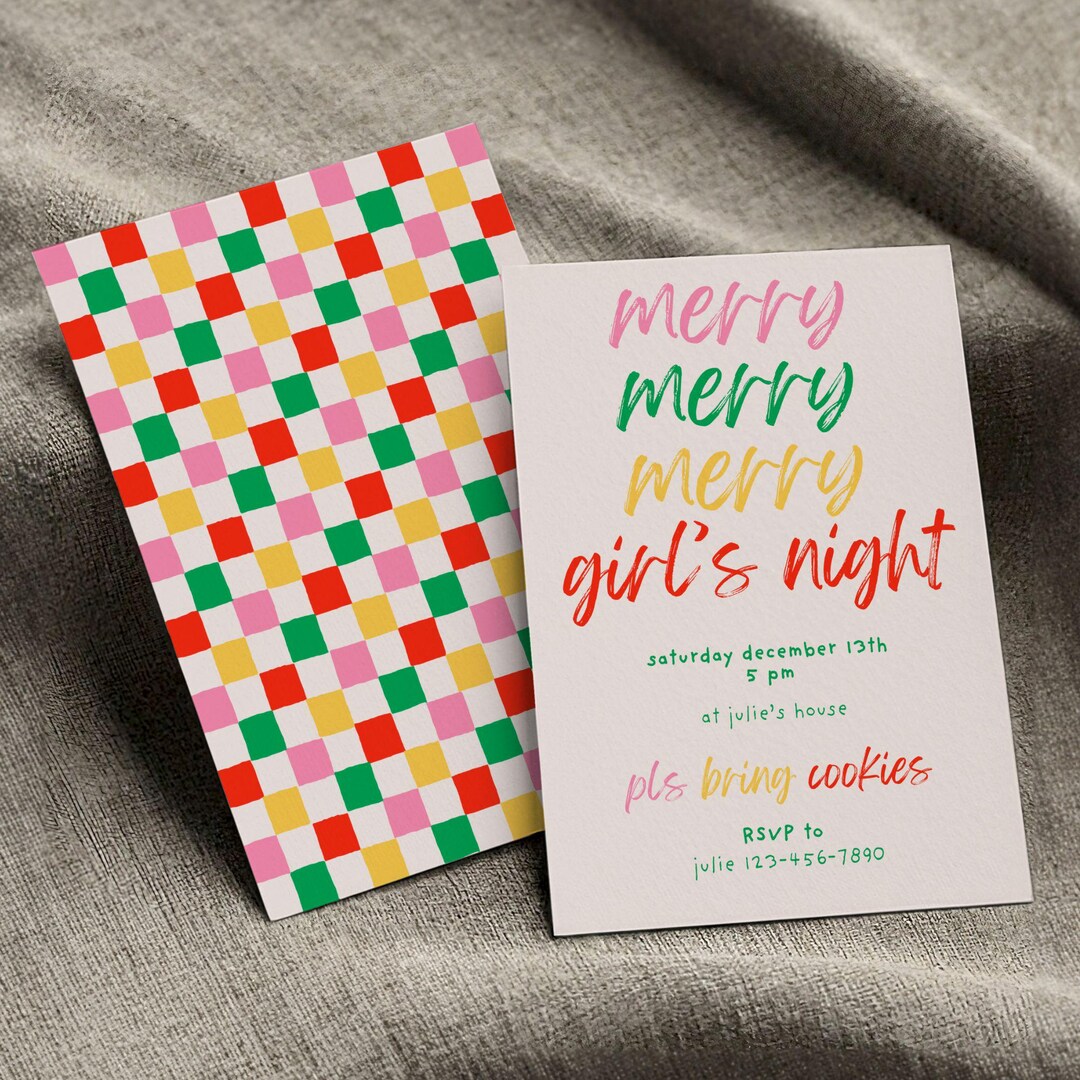 merry
merry
merry
girl's night
saturday december 13th
5 pm
at julie's house
pls bring cookies
RSVP to
julie 123-456-7890